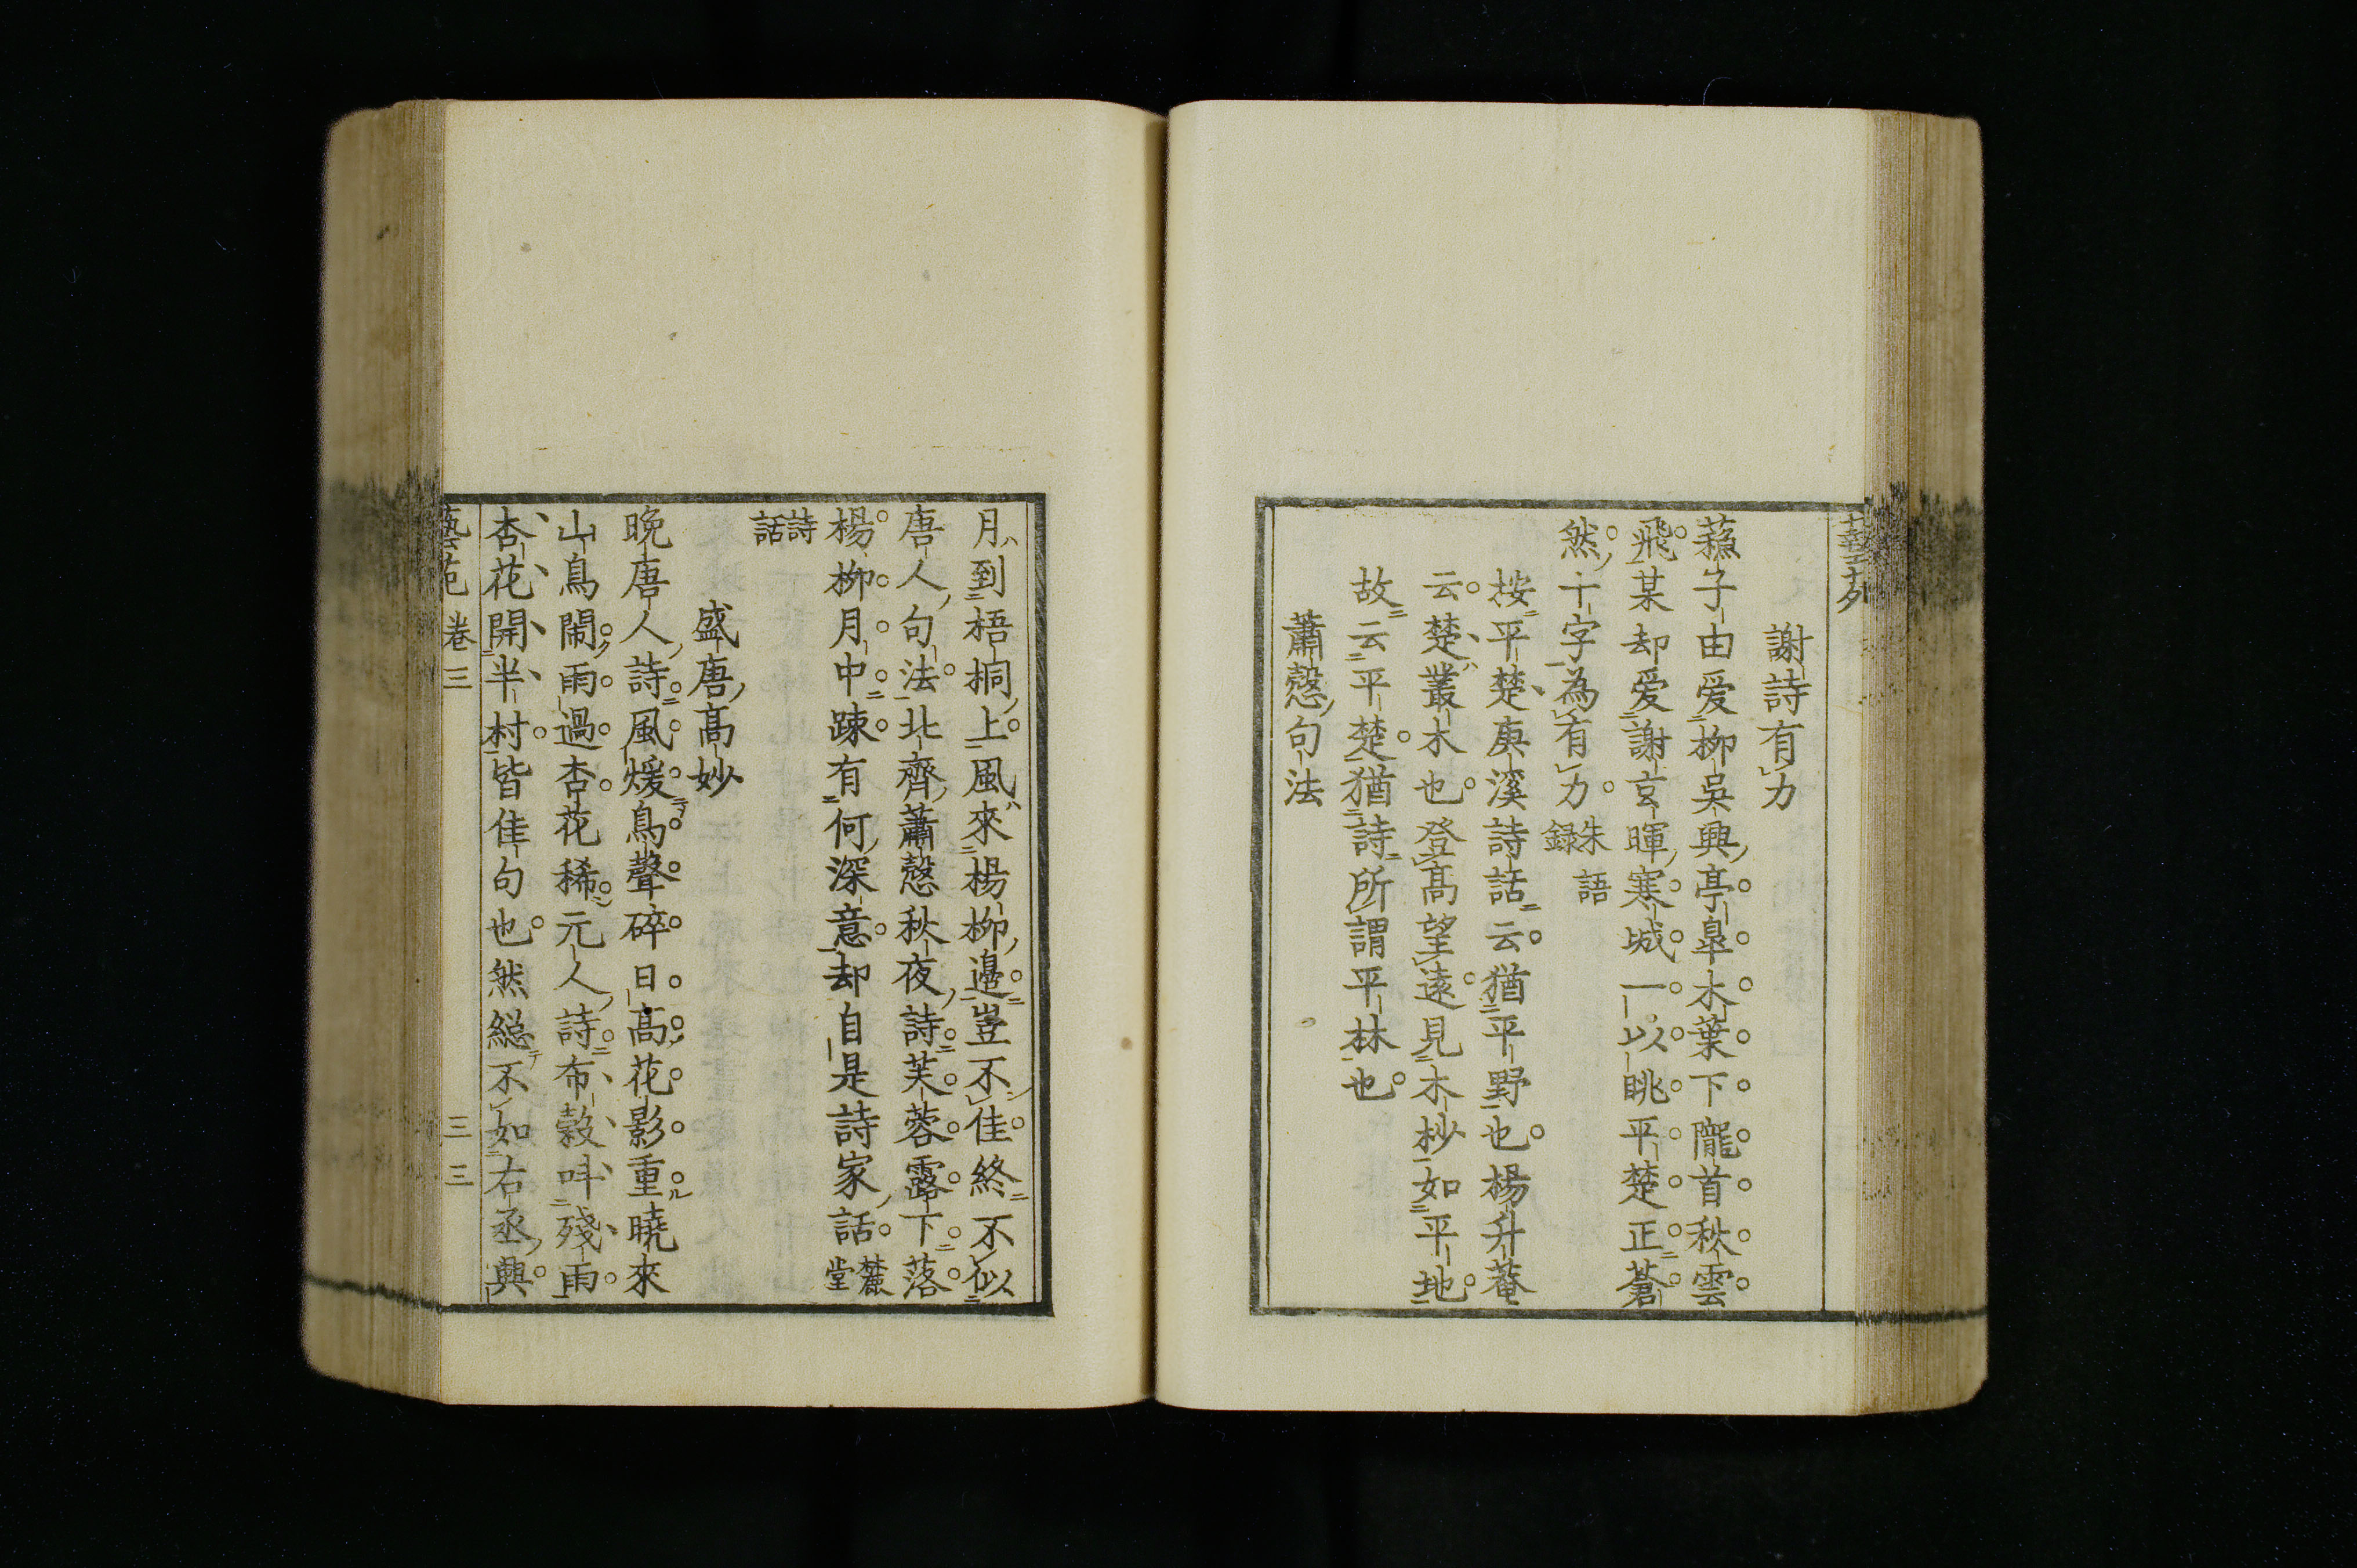 謝詩有力
蘓子由愛柳吳興亭皐木葉下隴首秋雲
飛某却愛謝玄暉寒城一以眺平楚正蒼
然十字為有力朱語録
按平楚庚溪詩話云猶平野也楊升菴
云楚叢木也登高望遠見木杪如平地
故云平楚猶詩所謂平林也
蕭愨句法
月到梧桐上風來楊柳邊豈不佳終不似
唐人句法北齊蕭愨秋夜詩芙蓉露下落
楊柳月中踈有何深意却自是詩家話麓堂
詩話
盛唐高妙
晚唐人詩風煖鳥聲碎日高花影重曉來
山鳥鬧雨過杏花稀元人詩布穀呌殘雨
杏花開半村皆佳句也然総不如右丞興
藝苑 卷三 三三